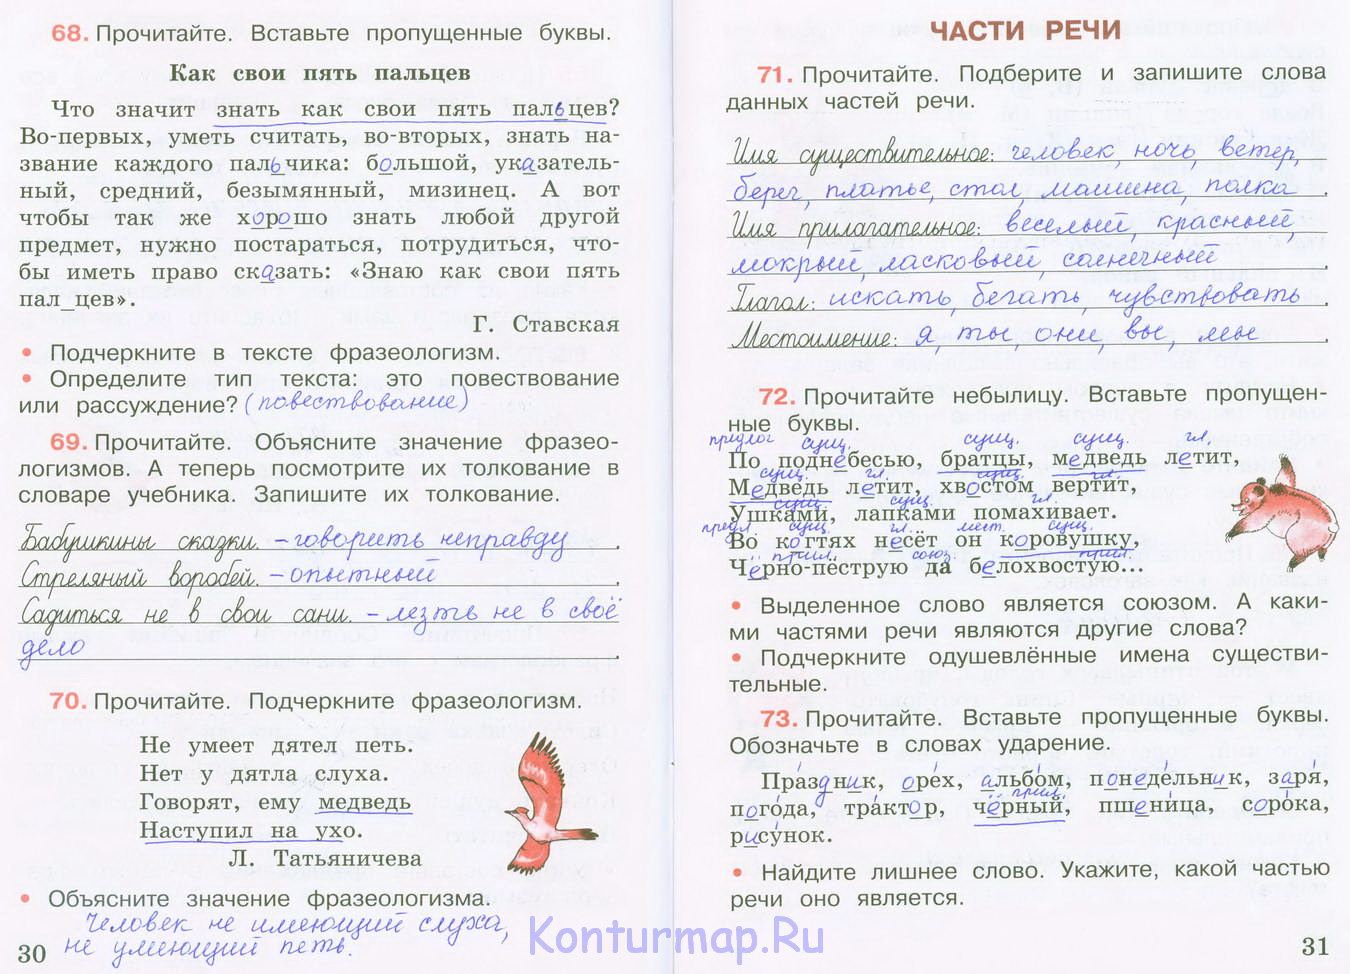 68. Прочитайте. Вставьте пропущенные буквы.
Как свои пять пальцев
Что значит знать как свои пять пальцев?
Во-первых, уметь считать, во-вторых, знать на-
звание каждого пальчика: большой, указатель-
ный, средний, безымянный, мизинец. А вот
чтобы так же хорошо знать любой другой
предмет, нужно постараться, потрудиться, что-
бы иметь право сказать: «Знаю как свои пять
пал_цев».
Г. Ставская
• Подчеркните в тексте фразеологизм.
• Определите тип текста: это повествование
или рассуждение? (повествование)
69. Прочитайте. Объясните значение фразео-
логизмов. А теперь посмотрите их толкование в
словаре учебника. Запишите их толкование.
Бабушкины сказки. - говорить неправду
Стреляный воробей. - опытный
Садиться не в свои сани. - лезть не в своё
дело
70. Прочитайте. Подчеркните фразеологизм.
Не умеет дятел петь.
Нет у дятла слуха.
Говорят, ему медведь
Наступил на ухо.
Л. Татьяничева
• Объясните значение фразеологизма.
Человек не имеющий слуха,
не умеющий петь.
30
ЧАСТИ РЕЧИ
71. Прочитайте. Подберите и запишите слова
данных частей речи.
Имя существительное: человек, ночь, ветер,
берег, платье, стол, машина, полка
Имя прилагательное: веселый, красный,
мокрый, ласковый, солнечный
Глагол: искать, бегать, чувствовать
Местоимение: я, ты, они, вы, мы
72. Прочитайте небылицу. Вставьте пропущен-
ные буквы.
предлог сущ. сущ. сущ. гл.
По поднебесью, братцы, медведь летит,
сущ. гл. сущ. гл.
Медведь летит, хвостом вертит,
сущ. сущ. гл.
Ушками, лапками помахивает.
предл сущ. гл. мест. сущ.
Во когтях несёт он коровушку,
прил. союз прил.
Чёрно-пёструю да белохвостую...
• Выделенное слово является союзом. А каки-
ми частями речи являются другие слова?
• Подчеркните одушевлённые имена существи-
тельные.
73. Прочитайте. Вставьте пропущенные буквы.
Обозначьте в словах ударение.
Праздник, орех, альбом, понедельник, заря,
прил.
погода, трактор, чёрный, пшеница, сорока,
рисунок.
• Найдите лишнее слово. Укажите, какой частью
речи оно является.
31
Konturmap.Ru